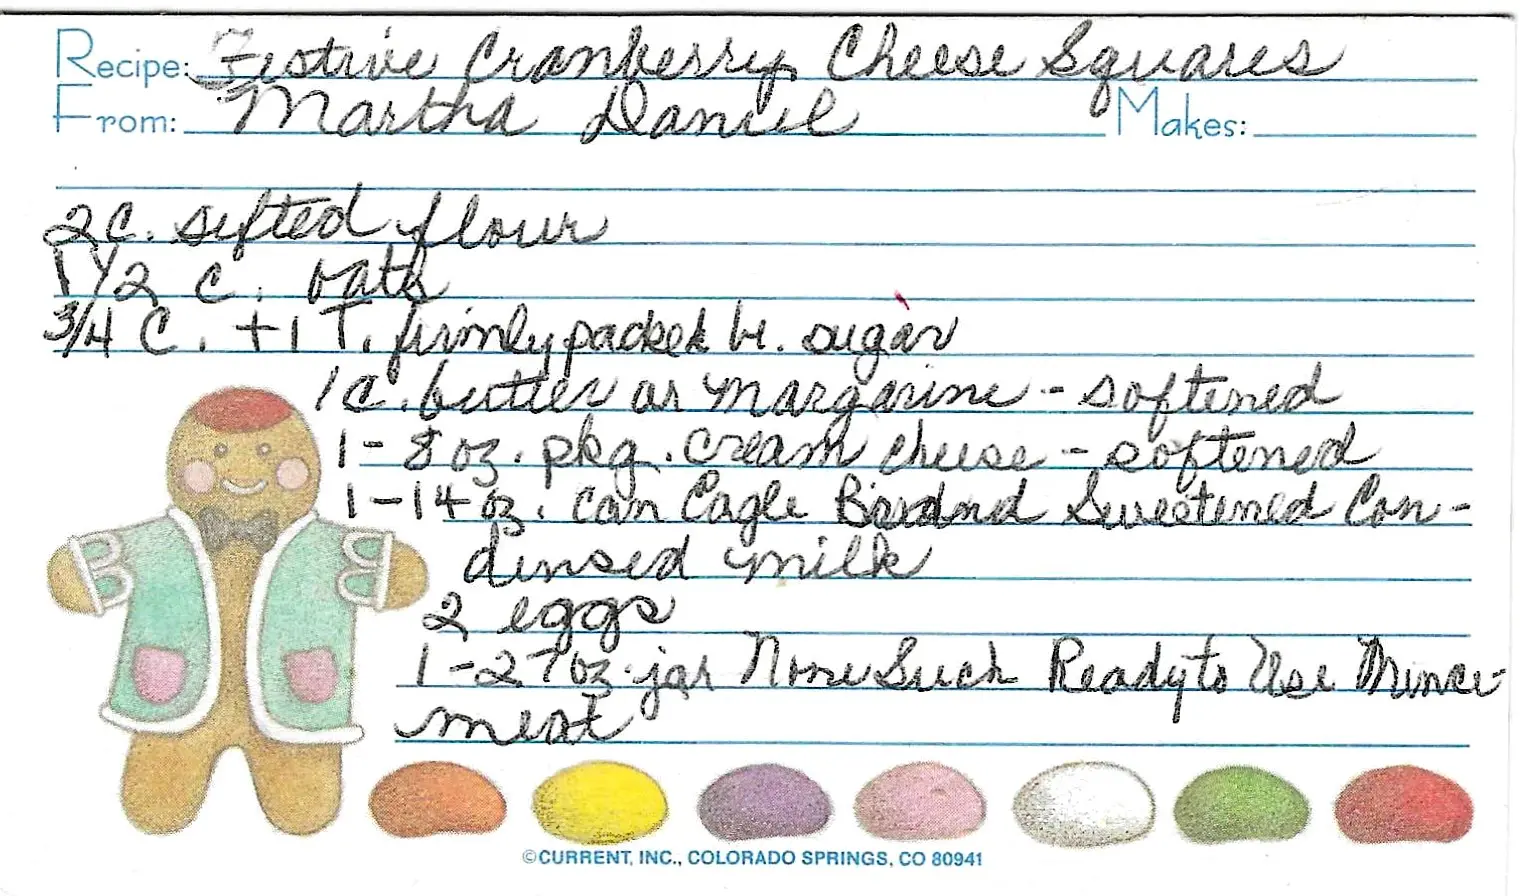 Recipe: Festive Cranberry Cheese Squares
From: Martha Daniel Makes:
2 C. sifted flour
1 1/2 C. oats
3/4 C. + 1 T. firmly packed br. sugar
1 C. butter or margarine - softened
1 - 8 oz. pkg. cream cheese - softened
1 - 14 oz. can Eagle Brand Sweetened Con-
densed milk
2 eggs
1 - 27 oz. jar None Such Ready to Use Mince-
meat
©CURRENT, INC., COLORADO SPRINGS, CO 80941